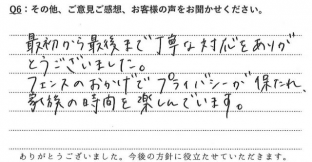 Q6：その他、ご意見ご感想、お客様の声をお聞かせください。
最初から最後まで丁寧な対応をありが
とうございました。
フェンスのおかげでプライバシーが保たれ、
家族の時間を楽しんでいます。
ありがとうございました。今後の方針に役立たせていただきます。